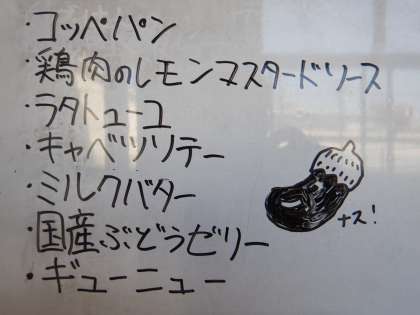 ・コッペパン
・鶏肉のレモンマスタードソース
・ラタトューユ
・キャベツソテー
・ミルクバター
・国産ぶどうゼリー
・ギューニュー
ナス!